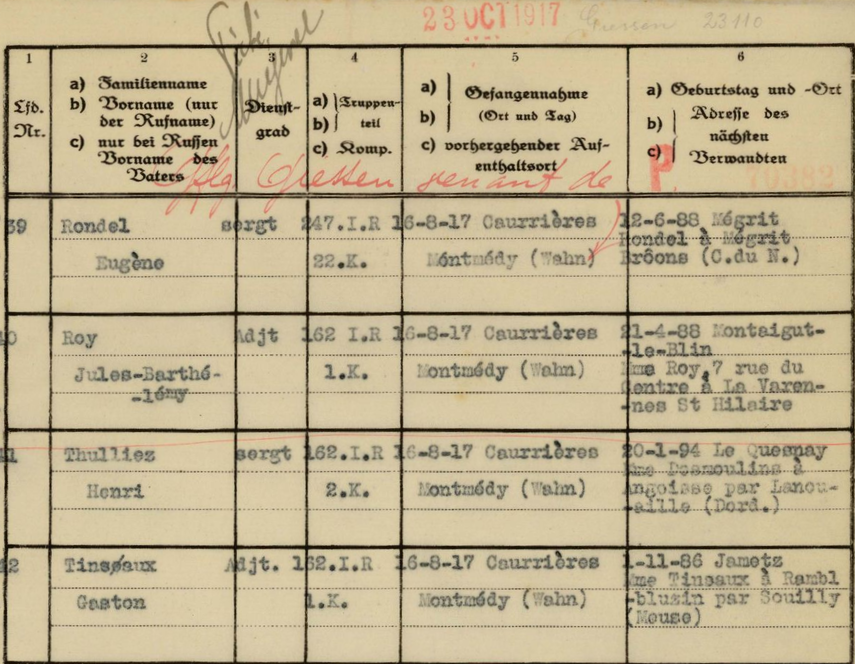 23 OCT 1917
Giessen 23110
1 2 3 4 5 6
Lfd. Nr.
a) Familienname
b) Vorname (nur der Rufname)
c) nur bei Russen Vorname des Vaters
Dienst-grad
a) b) Truppen-teil
c) Komp.
a) b) Gefangennahme (Ort und Tag)
c) vorhergehender Auf-enthaltsort
a) Geburtstag und -Ort
b) c) Adresse des nächsten Verwandten
Giessen venant de P. 70382
39 Rondel sergt 247.I.R 16-8-17 Caurrières 12-6-88 Mégrit
Rondel à Mégrit
Eugène 22.K. Montmédy (Wahn) Brôons (C.du N.)
Roy Adjt 162 I.R 16-8-17 Caurrières 21-4-88 Montaigut-
-le-Blin
Jules-Barthé- 1.K. Montmédy (Wahn) Mme Roy,7 rue du
-lémy Centre à La Varen-
-nes St Hilaire
Thulliez sergt 162.I.R 16-8-17 Caurrières 20-1-94 Le Quesnay
Mme Desmoulins à
Henri 2.K. Montmédy (Wahn) Angoisse par Lanou-
-aille (Dord.)
Tinseaux Adjt. 162.I.R 16-8-17 Caurrières 1-11-86 Jametz
Mme Tinsaux à Rambl
Gaston 1.K. Montmédy (Wahn) -bluzin par Souilly
(Meuse)